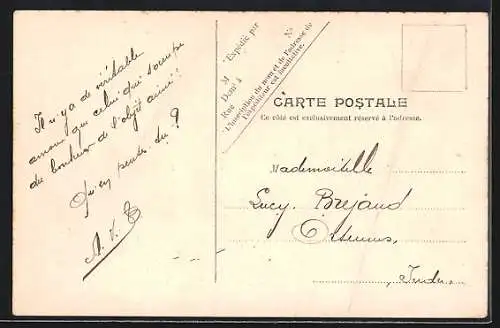 Il n'y a de véritable
amour que celui qui s'occupe
du bonheur de l'objet aimé!
Qu'en penses-tu?
A. V. C
Expédié par
M
Nº
Demt à
Rue
L'inscription du nom et de l'adresse de
l'expéditeur est facultative.
CARTE POSTALE
Ce côté est exclusivement réservé à l'adresse.
Mademoiselle
Lucy. Bréjaud
Indre.